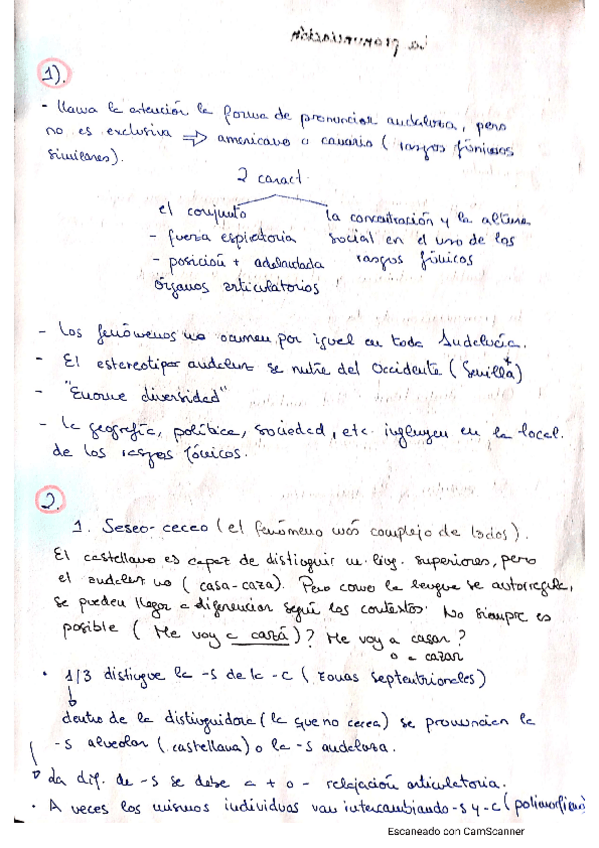 la pronunciación
1).
- llama la atención la forma de pronunciar andaluza, pero
no es exclusiva ⇒ americano o canario (rasgos fónicos
similares).
2 caract.
el conjunto
- fuerza espiratoria
- posición + adelantada
órganos articulatorios
la concentración y la altura
social en el uso de los
rasgos fónicos
- Los fenómenos no ocurren por igual en toda Andalucía.
- El estereotipo andaluz se nutre del Occidente (Sevilla*)
- "Enorme diversidad"
- La geografía, política, sociedad, etc. influyen en la local.
de los rasgos fónicos.
2.
1. Seseo-ceceo (el fenómeno más complejo de todos).
El castellano es capaz de distinguir u. ling. superiores, pero
el andaluz no (casa-caza). Pero como la lengua se autorregula,
se pueden llegar a diferenciar según los contextos. No siempre es
posible (Me voy a casá)? Me voy a casar?
o a cazar
· 1/3 distingue la -s de la -c (zonas septentrionales)
dentro de la distinguidora (la que no cecea) se pronuncian la
-s alveolar (castellana) o la -s andaluza.
La dif. de -s se debe a + o - relajación articulatoria.
· A veces los mismos individuos van intercambiando -s y -c (polimorfismo)
Escaneado con CamScanner